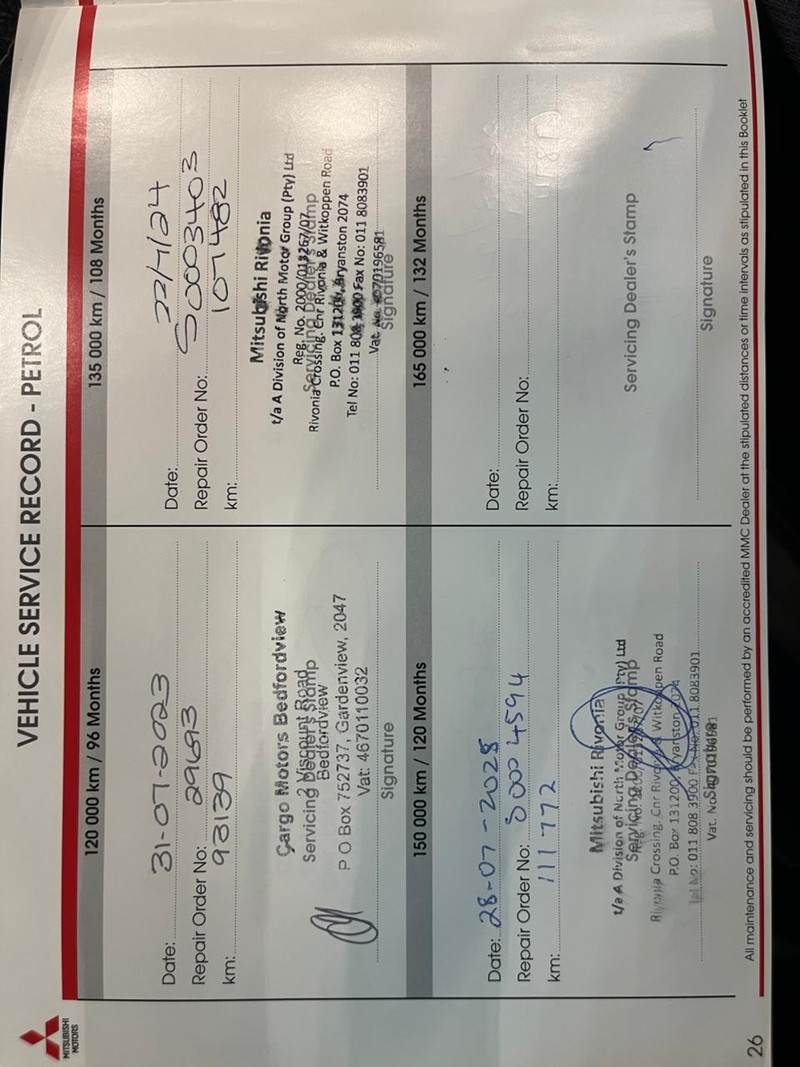 MITSUBISHI
MOTORS
VEHICLE SERVICE RECORD - PETROL
120 000 km / 96 Months
Date: 31-07-2023
Repair Order No: 29693
km: 93139
Cargo Motors Bedfordview
2 Viscount Road
Servicing Dealer's Stamp
Bedfordview
P O Box 752737, Gardenview, 2047
Vat: 4670110032
Signature
135 000 km / 108 Months
Date: 22/7/24
Repair Order No: S0003403
km: 107482
Mitsubishi Rivonia
t/a A Division of North Motor Group (Pty) Ltd
Reg. No. 2000/013267/07
Servicing Dealer's Stamp
Rivonia Crossing, Cnr Rivonia & Witkoppen Road
P.O. Box 131200, Bryanston 2074
Tel No: 011 808 3900 Fax No: 011 8083901
Vat. No. 4070196581
Signature
150 000 km / 120 Months
Date: 28-07-2025
Repair Order No: S000 4594
km: 111772
Mitsubishi Rivonia
t/a A Division of North Motor Group (Pty) Ltd
Servicing Dealer's Stamp
Rivonia Crossing, Cnr Rivonia & Witkoppen Road
P.O. Box 131200, Bryanston 2074
Tel No: 011 808 3900 Fax No: 011 8083901
Vat. No.
Signature
165 000 km / 132 Months
Date:
Repair Order No:
km:
Servicing Dealer's Stamp
Signature
All maintenance and servicing should be performed by an accredited MMC Dealer at the stipulated distances or time intervals as stipulated in this Booklet
26